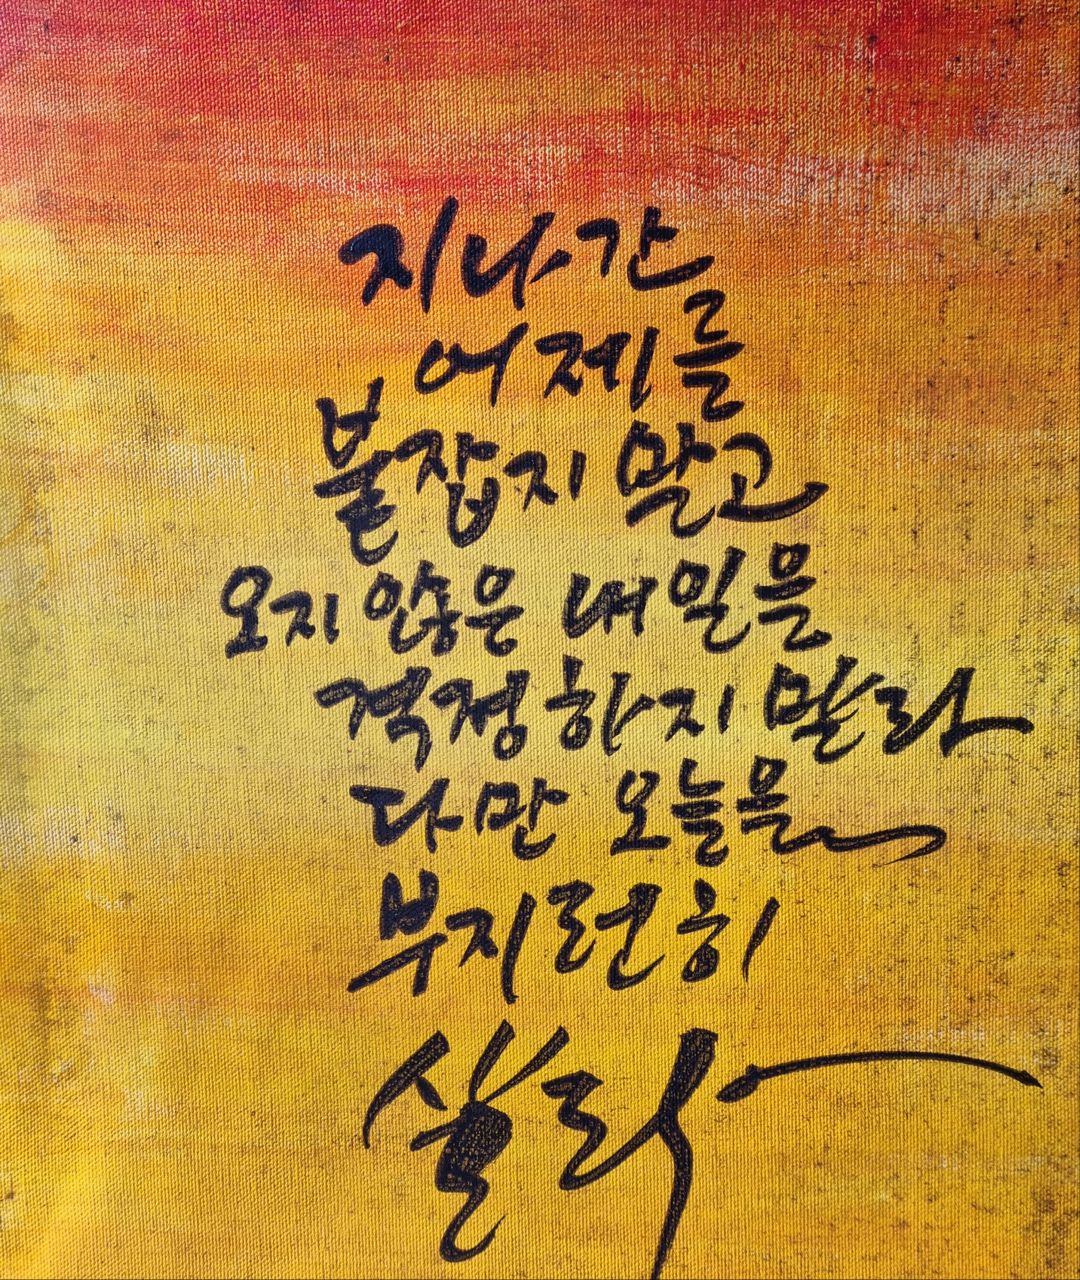 지나간
어제를
붙잡지 말고
오지 않은 내일을
걱정하지 말라
다만 오늘을
부지런히
살라